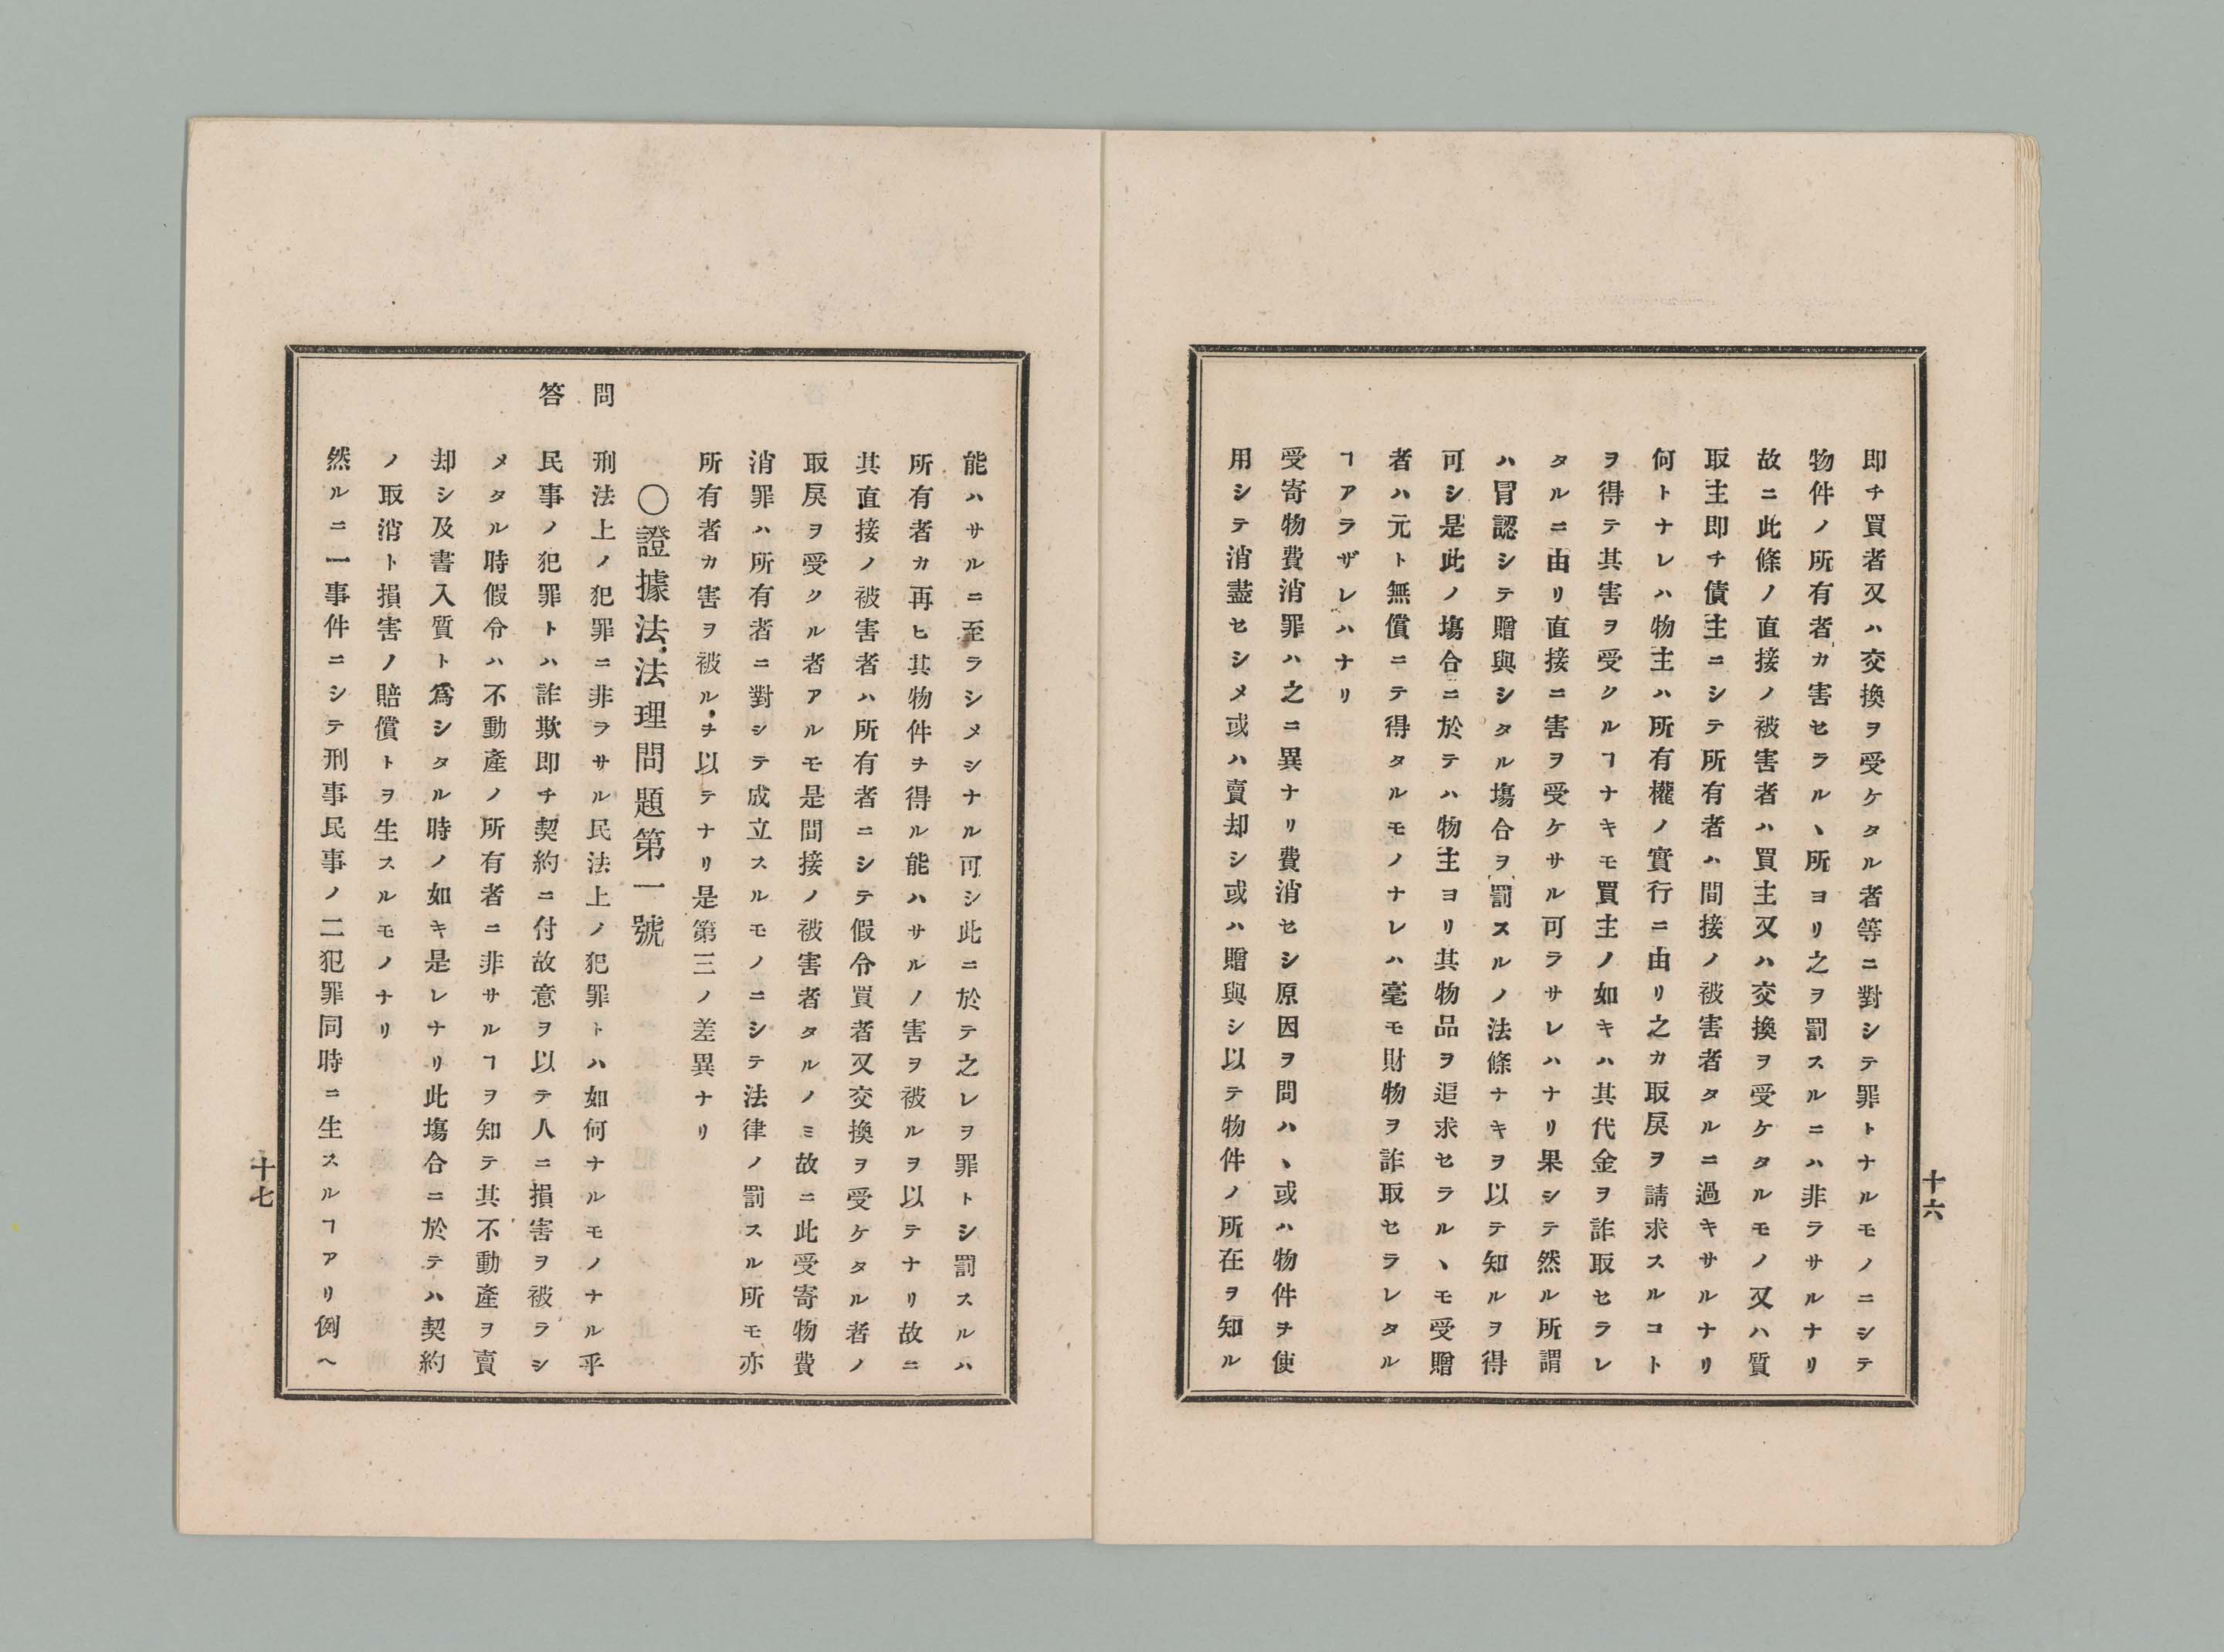 即チ買者又ハ交換ヲ受ケタル者等ニ對シテ罪トナルモノニシテ
物件ノ所有者カ害セラルヽ所ヨリ之ヲ罰スルニハ非ラサルナリ
故ニ此條ノ直接ノ被害者ハ買主又ハ交換ヲ受ケタルモノ又ハ質
取主即チ債主ニシテ所有者ハ間接ノ被害者タルニ過キサルナリ
何トナレハ物主ハ所有權ノ實行ニ由リ之カ取戾ヲ請求スルコト
ヲ得テ其害ヲ受クルヿナキモ買主ノ如キハ其代金ヲ詐取セラレ
タルニ由リ直接ニ害ヲ受ケサル可ラサレハナリ果シテ然ル所謂
ハ冐認シテ贈與シタル塲合ヲ罰スルノ法條ナキヲ以テ知ルヲ得
可シ是此ノ塲合ニ於テハ物主ヨリ其物品ヲ追求セラルヽモ受贈
者ハ元ト無償ニテ得タルモノナレハ毫モ財物ヲ詐取セラレタル
ヿアラザレハナリ
受寄物費消罪ハ之ニ異ナリ費消セシ原因ヲ問ハヽ或ハ物件ヲ使
用シテ消盡セシメ或ハ賣却シ或ハ贈與シ以テ物件ノ所在ヲ知ル
十六
能ハサルニ至ラシメシナル可シ此ニ於テ之レヲ罪トシ罰スルハ
所有者カ再ヒ其物件ヲ得ル能ハサルノ害ヲ被ルヲ以テナリ故ニ
其直接ノ被害者ハ所有者ニシテ假令買者又交換ヲ受ケタル者ノ
取戾ヲ受クル者アルモ是間接ノ被害者タルノミ故ニ此受寄物費
消罪ハ所有者ニ對シテ成立スルモノニシテ法律ノ罰スル所モ亦
所有者カ害ヲ被ルヲ以テナリ是第三ノ差異ナリ
〇證據法法理問題第一號
問 刑法上ノ犯罪ニ非ヲサル民法上ノ犯罪トハ如何ナルモノナル乎
答 民事ノ犯罪トハ詐欺即チ契約ニ付故意ヲ以テ人ニ損害ヲ被ラシ
メタル時假令ハ不動產ノ所有者ニ非サルヿヲ知テ其不動產ヲ賣
却シ及書入質ト爲シタル時ノ如キ是レナリ此塲合ニ於テハ契約
ノ取消ト損害ノ賠償トヲ生スルモノナリ
然ルニ一事件ニシテ刑事民事ノ二犯罪同時ニ生スルヿアリ例ヘ
十七